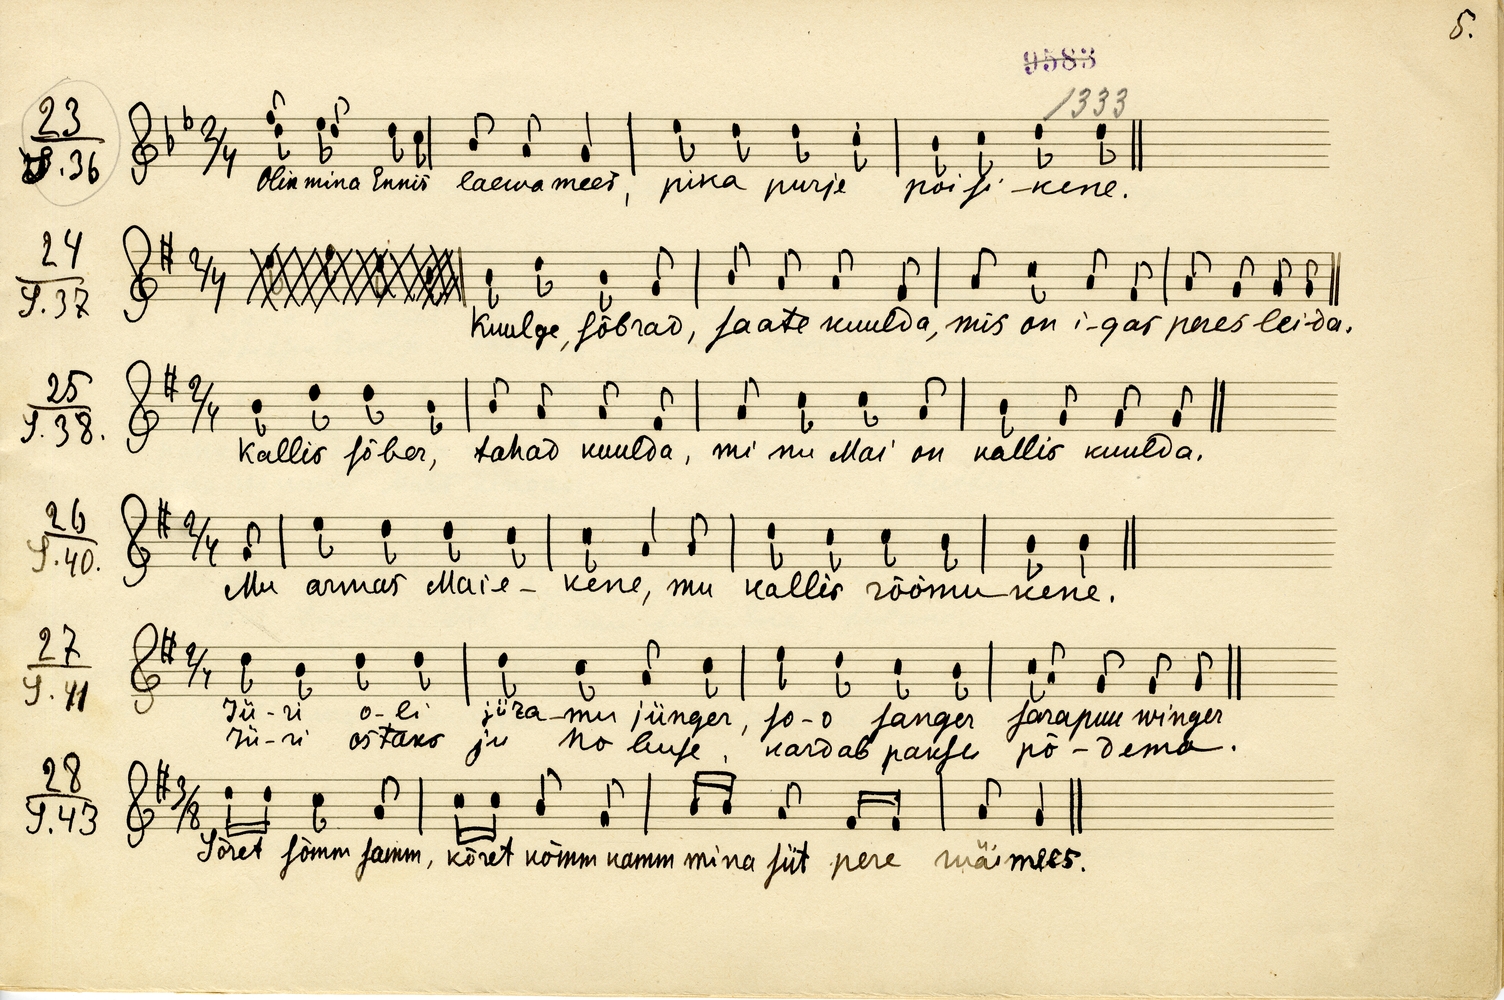 5.
9583
1333
23
S.36
2/4
Olin mina Ennis laewa mees, pika purje poisi-kene.
24
S.37
2/4
Kuulge, sõbrad, saate kuulda, mis on i-gas peres leida.
25
S.38.
2/4
Kallis sõber, tahad kuulda, mi nu Mai on kallis kuulda.
26
S.40.
2/4
Mu armas Maie-kene, mu kallis rõõmu-kene.
27
S.41
2/4
Jü-ri o-li jüra-mu jünger, so-o sanger sarapuu winger
Jü-ri ostaks ju kardab paksu põ-dema.
28
S.43
3/8
Sõret sõmm samm, kõret kõmm kamm mina siit pere wäimees.